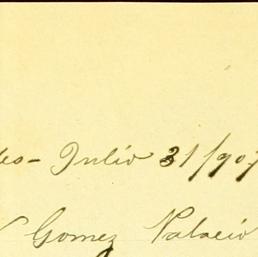 es- Julio 31/907
Gomez Palacio